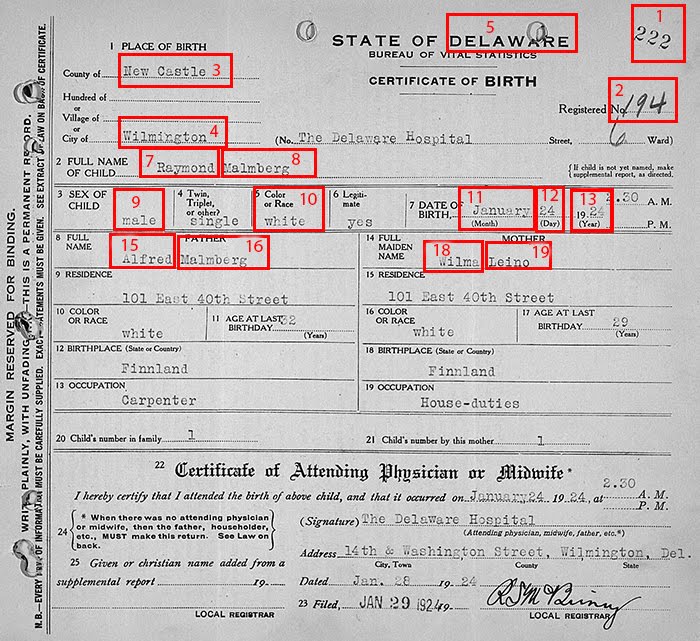 1
222
5
STATE OF DELAWARE
BUREAU OF VITAL STATISTICS
CERTIFICATE OF BIRTH
1 PLACE OF BIRTH
County of New Castle 3
Hundred of
or
Village of
or
City of Wilmington 4
2
Registered No. 194
(No. The Delaware Hospital Street, 6 Ward)
2 FULL NAME OF CHILD 7 Raymond Malmberg 8
{ If child is not yet named, make supplemental report, as directed.
3 SEX OF CHILD 9 male
4 Twin, Triplet, or other? single
5 Color or Race 10 white
6 Legiti- mate yes
7 DATE OF BIRTH, 11 January (Month) 12 24 (Day) 13 1924 (Year)
2.30 A. M.
P. M.
FATHER
8 FULL NAME 15 Alfred 16 Malmberg
9 RESIDENCE
101 East 40th Street
10 COLOR OR RACE white
11 AGE AT LAST BIRTHDAY 32 (Years)
12 BIRTHPLACE (State or Country)
Finnland
13 OCCUPATION
Carpenter
MOTHER
14 FULL MAIDEN NAME 18 Wilma 19 Leino
15 RESIDENCE
101 East 40th Street
16 COLOR OR RACE white
17 AGE AT LAST BIRTHDAY 29 (Years)
18 BIRTHPLACE (State or Country)
Finnland
19 OCCUPATION
House-duties
20 Child's number in family 1
21 Child's number by this mother 1
22 Certificate of Attending Physician or Midwife*
I hereby certify that I attended the birth of above child, and that it occurred on January 24 19 24, at 2.30 A. M.
P. M.
24 { * When there was no attending physician
or midwife, then the father, householder,
etc., MUST make this return. See Law on
back.
(Signature) The Delaware Hospital
(Attending physician, midwife, father, etc.*)
Address 14th & Washington Street, Wilmington, Del.
City, Town County State
25 Given or christian name added from a
supplemental report 19
LOCAL REGISTRAR
Dated Jan. 28 19 24
23 Filed, JAN 29 1924 19
LOCAL REGISTRAR
MARGIN RESERVED FOR BINDING.
WRITE PLAINLY, WITH UNFADING THIS IS A PERMANENT RECORD.
N. B.—EVERY OF INFORMATION MUST BE CAREFULLY SUPPLIED. EXACT STATEMENTS MUST BE GIVEN. SEE EXTRACT LAW ON BACK OF CERTIFICATE.